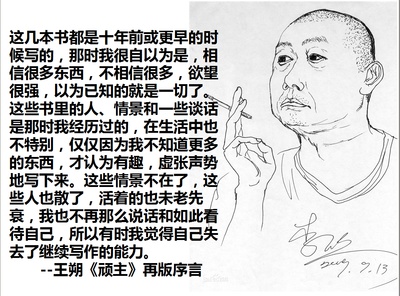 这几本书都是十年前或更早的时
候写的，那时我很自以为是，相
信很多东西，不相信很多，欲望
很强，以为已知的就是一切了。
这些书里的人、情景和一些谈话
是那时我经历过的，在生活中也
不特别，仅仅因为我不知道更多
的东西，才认为有趣，虚张声势
地写下来。这些情景不在了，这
些人也散了，活着的也未老先
衰，我也不再那么说话和如此看
待自己，所以有时我觉得自己失
去了继续写作的能力。
--王朔《顽主》再版序言